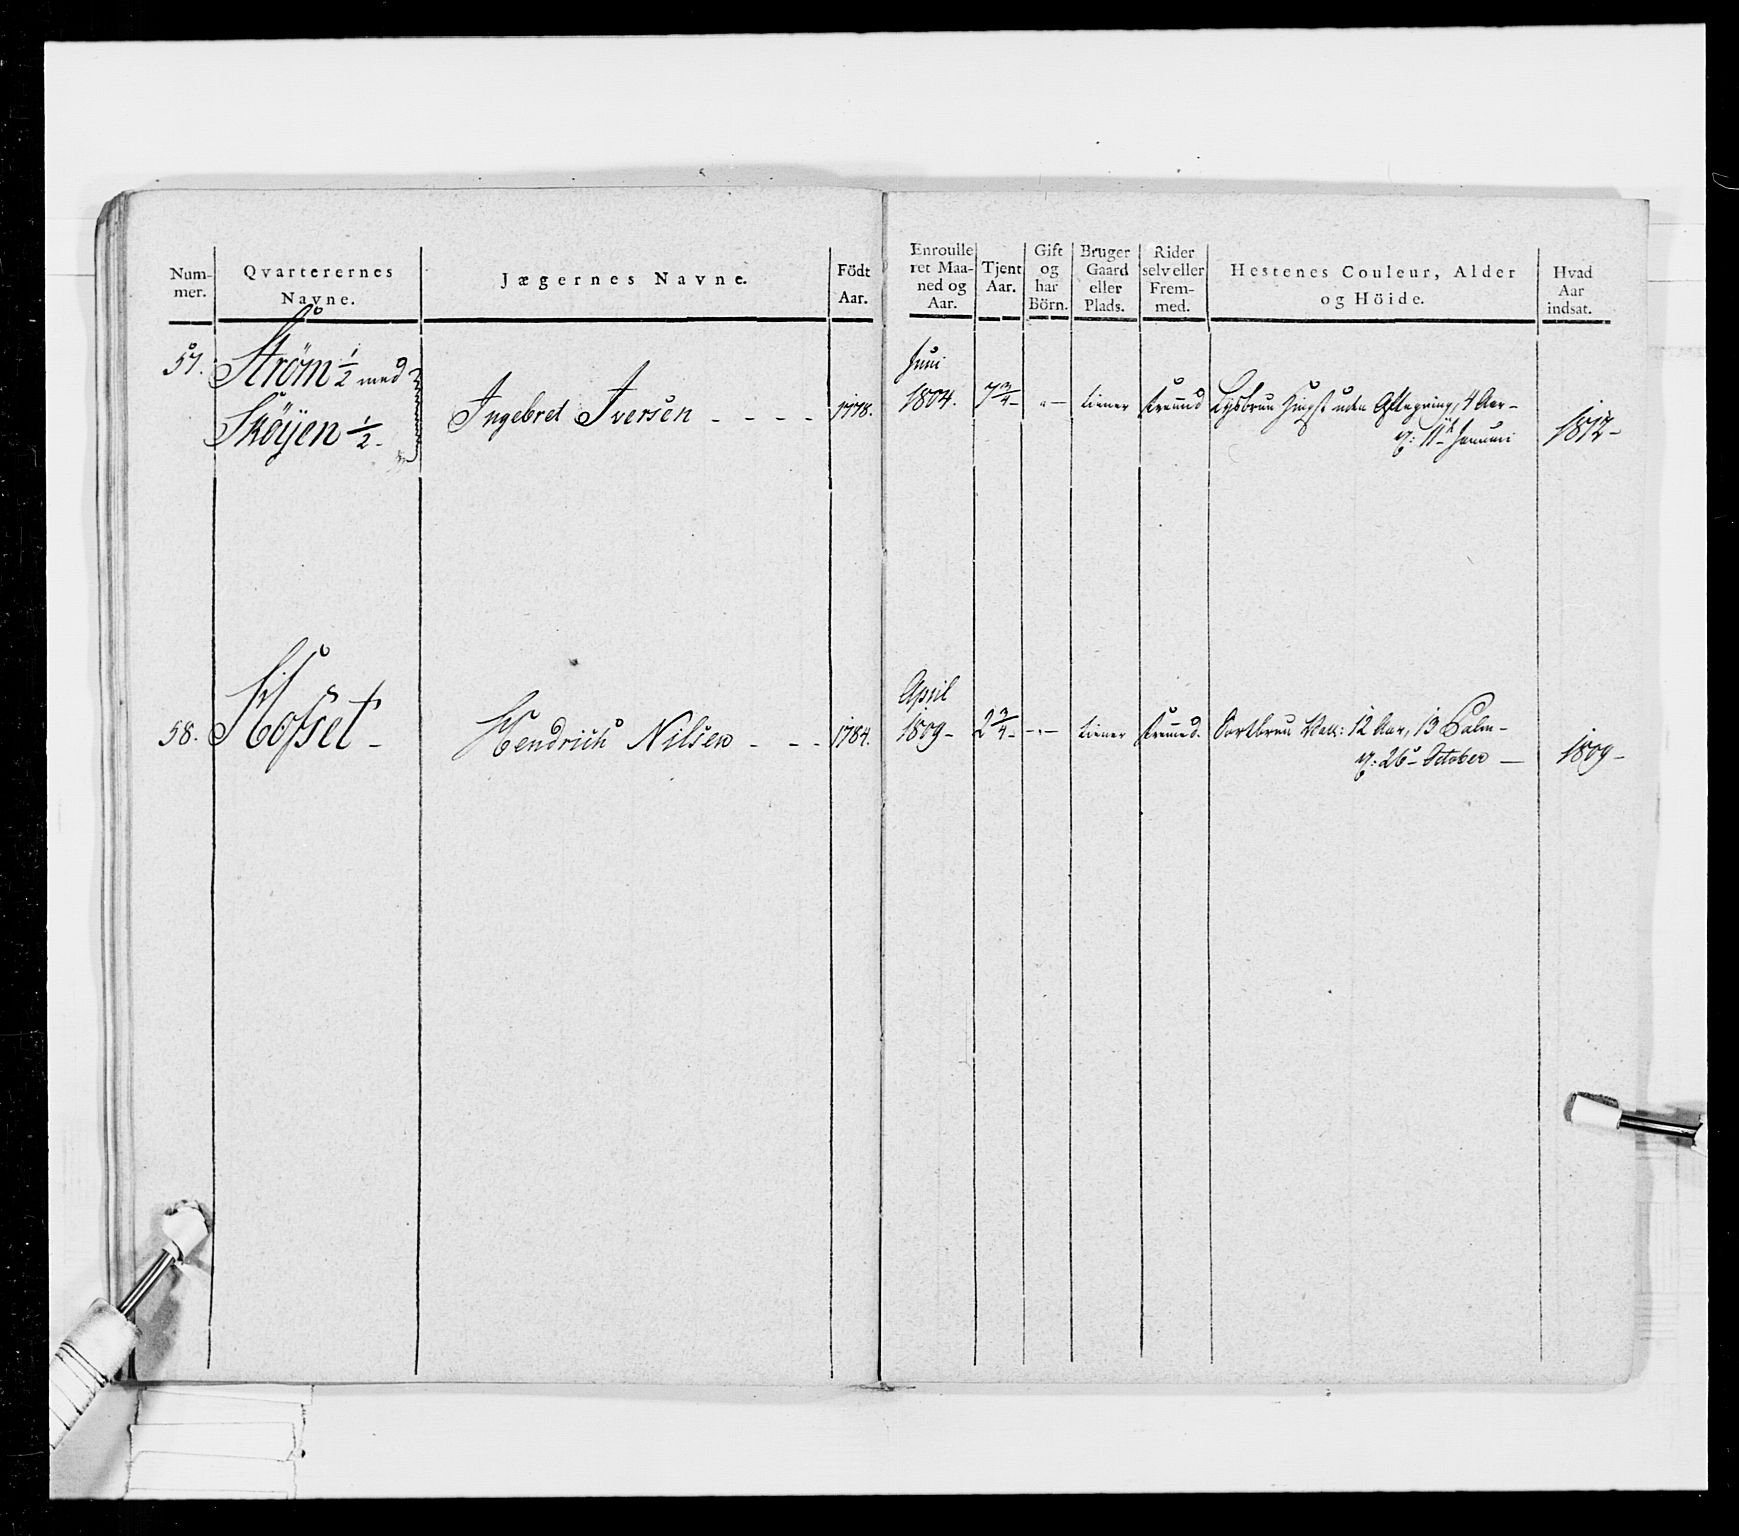 Num-
mer.
Qvarterernes
Navne.
Jægernes Navne.
Födt
Aar.
Enroulle
ret Maa-
ned og
Aar.
Tjent
Aar.
Gift
og
har
Börn.
Bruger
Gaard
eller
Plads.
Rider
selv eller
Frem-
med.
Hestenes Couleur, Alder
og Höide.
Hvad
Aar
indsat.
57. Strøm ½ med
Skøyen ½ -
Ingebret Iversen - - - -
1778.
Juni
1804. 7 3/4 - " - tiener fremmed Lysbrun Hingst uden Aftegning, 4 Aar -
11te Januari
1812 -
58. Hofset -
Hendrich Nilsen - - -
1784.
April
1809 - 2 3/4 - - " - tiener fremmed. Sortbrun Val: 12 Aar, 13 Palm -
26 - October -
1809 -